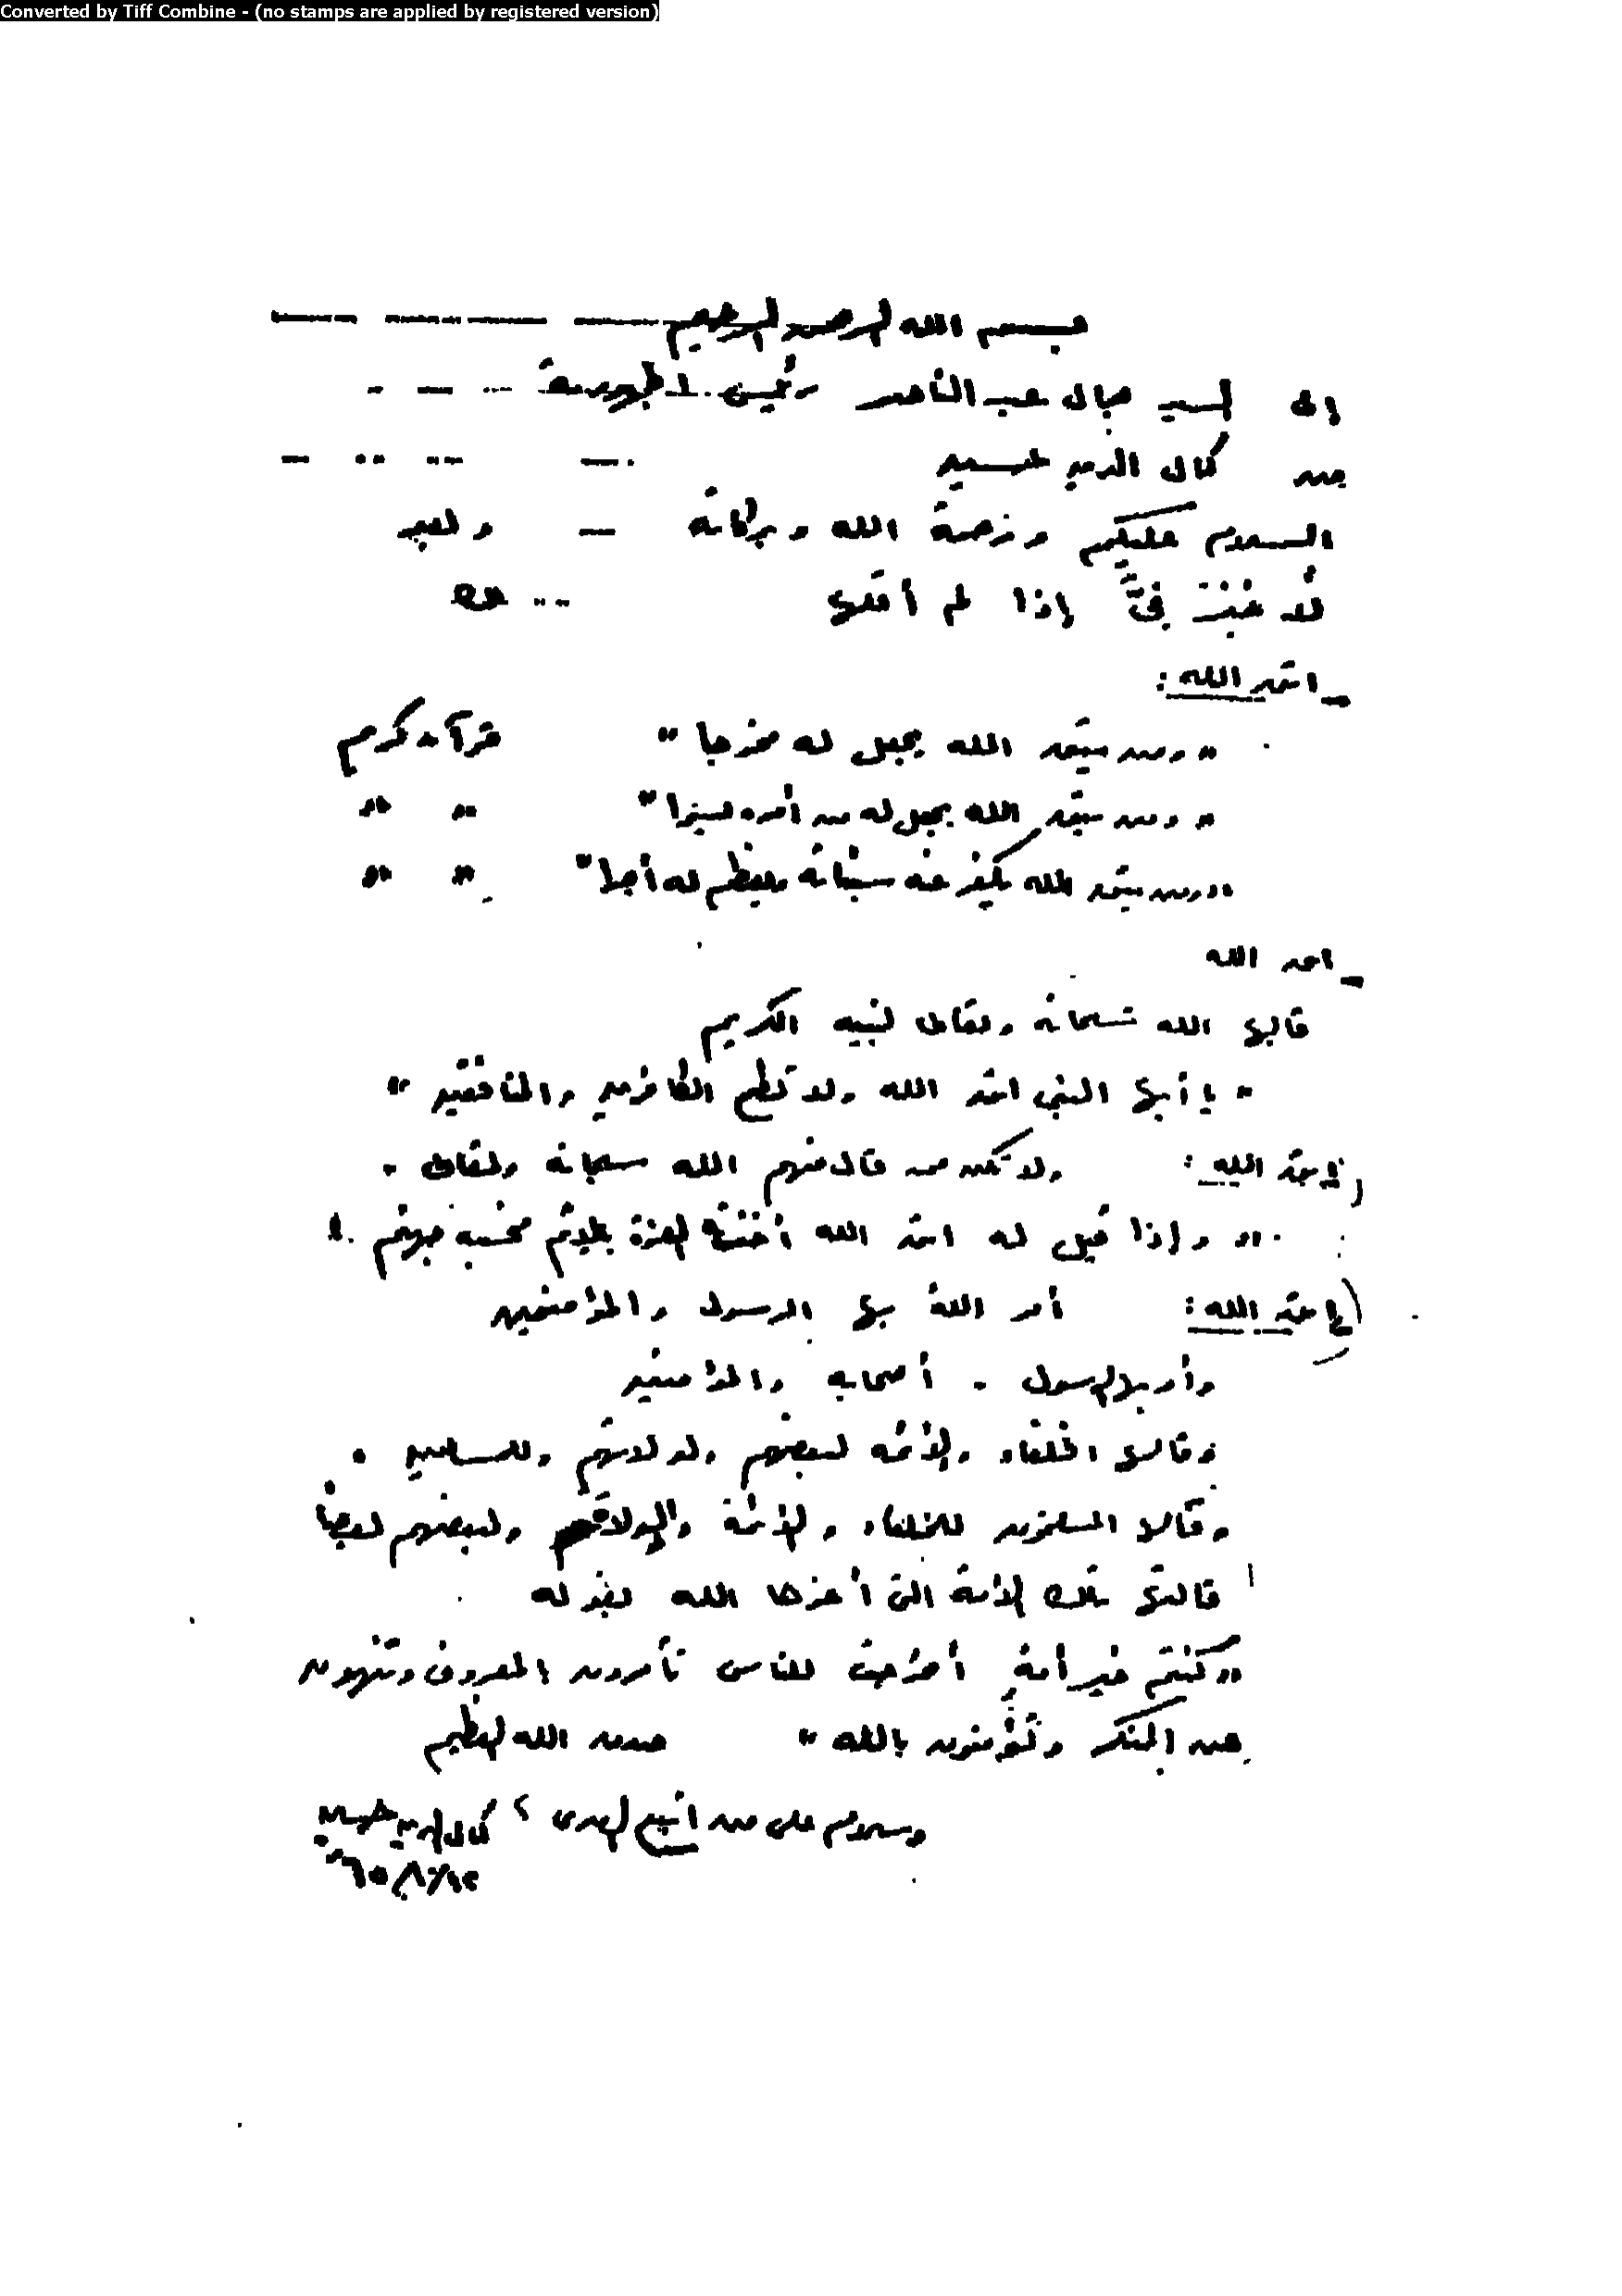 Converted by Tiff Combine - (no stamps are applied by registered version)
بسم الله الرحمن الرحيم
إلى السيد جمال عبد الناصر رئيس الجمهورية
من كمال الدين حسين
السلام عليكم ورحمة الله وبركاته — وبعد
لا خير فيّ إذا لم أقلها
_ اتق الله :
" ومن يتق الله يجعل له مخرجا " قرآن كريم
" ومن يتق الله يجعل له من أمره يسرا " " "
" ومن يتق الله يكفر عنه سيئاته ويعظم له أجرا " " "
_ اتق الله
قالها الله سبحانه وتعالى لنبيه الكريم
" يا أيها النبي اتق الله ولا تطع الكافرين والمنافقين "
اتق الله : ولا تكن ممن قال فيهم الله سبحانه وتعالى .
" وإذا قيل له اتق الله أخذته العزة بالإثم فحسبه جهنم . "
اتق الله : أمر الله بها الرسول والمؤمنين
وأمر بها الرسول . أصحابه والمؤمنين
وقالها الخلفاء والأئمة لبعضهم ولولاتهم وللمسلمين .
وقالها المسلمون للخلفاء والأئمة والولاة ولبعضهم بعضا
قالتها تلك الأمة التي أعزها الله بقوله
" كنتم خير أمة أخرجت للناس تأمرون بالمعروف وتنهون
عن المنكر وتؤمنون بالله " صدق الله العظيم
وسلام على من اتبع الهدى ، كمال الدين حسين
٦٥/٨/١٢